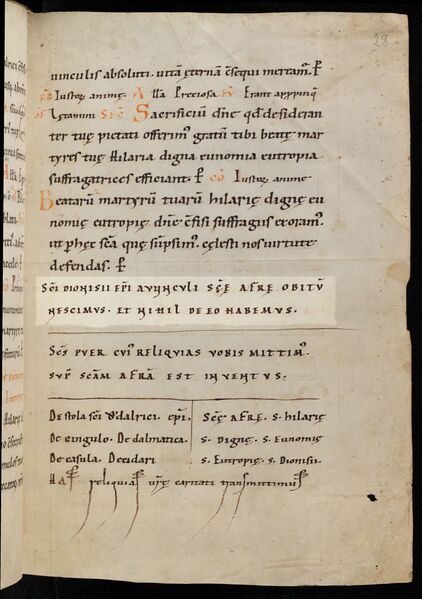 28
uinculis absoluti. uitã ęternã c̃sequi meream᷑. P̃
Iustoꝝ animę. Alta Preciosa. Erant appropinq̃
Lętamini Sacrificiũ dñe qd̃ desideran
ter tuę pietati offerim᷒ gratũ tibi beatę mar
tyres tuę Hilaria digna eunomia eutropia
suffragatrices efficiant. P̃ cõ Iustoꝝ animę
Beatarũ martyrũ tuarũ hilarię dignę eu
nomię eutropię dñe c̃fisi suffragiis exoram᷒
ut p̱ hęc sc̃a quę sũpsim᷒. cęlesti nos uirtute
defendas. P̃
SC̃I DIONISII EP̃I AVVNCVLI SC̃Ę AFRĘ OBITV̄
NESCIMVS. ET NIHIL DE EO HABEMVS.
SC̃S PVER CVI᷒ RELIQVIAS VOBIS MITTIM᷒.
SVP̱ SC̃AM AFRÃ EST INVENTVS.
De stola sc̃i Vdalrici ep̃i. Sc̃ę AFRĘ. S. hilarię
De cingulo. De dalmatica. S. Dignę. S. Eunomię
De casula. S. Eutropię. S. Dionisii.
Has reliquias urẽ caritati transmittimus